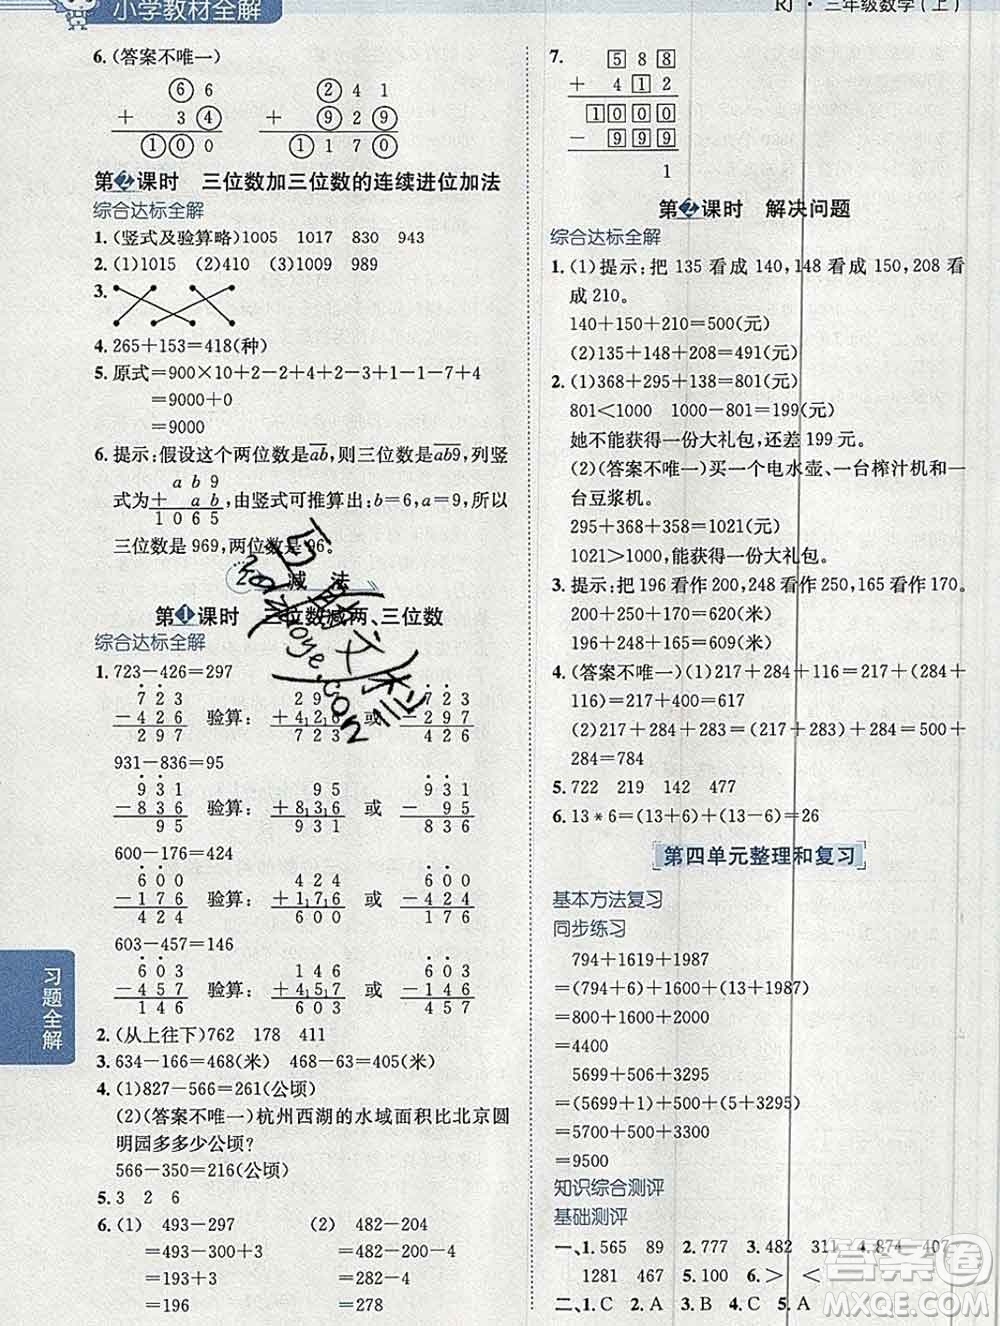 小学教材全解
RJ · 三年级数学(上)
6.(答案不唯一)
⑥ 6
+ 3 ④
① ⓪ 0
② 4 1
+ ⑨ 2 ⑨
① 1 7 ⓪
第2课时 三位数加三位数的连续进位加法
综合达标全解
1.(竖式及验算略)1005 1017 830 943
2.(1)1015 (2)410 (3)1009 989
3.
4. 265+153=418(种)
5. 原式=900×10+2-2+4-6+1-7+4+4
=9000+0
=9000
6. 提示:假设这个两位数是ab,则三位数是ab9,列竖
a b 9
式为+ a b,由竖式可推算出:b=6,a=9,所以
1 0 6 5
三位数是969,两位数是96。
减 法
第1课时 三位数减两、三位数
综合达标全解
1. 723-426=297
7 2 3
-4 2 6
2 9 7
验算:
2 9 7
+4 2 6
7 2 3
或
7 2 3
-2 9 7
4 2 6
931-836=95
9 3 1
-8 3 6
9 5
验算:
9 5
+8 3 6
9 3 1
或
9 3 1
- 9 5
8 3 6
600-176=424
6 0 0
-1 7 6
4 2 4
验算:
4 2 4
+1 7 6
6 0 0
或
6 0 0
-4 2 4
1 7 6
603-457=146
6 0 3
-4 5 7
1 4 6
验算:
1 4 6
+4 5 7
6 0 3
或
6 0 3
-1 4 6
4 5 7
2.(从上往下)762 178 411
3. 634-166=468(米) 468-63=405(米)
4.(1)827-566=261(公顷)
(2)(答案不唯一)杭州西湖的水域面积比北京圆
明园多多少公顷?
566-350=216(公顷)
5. 3 2 6
6.(1) 493-297 (2) 482-204
=493-300+3 =482-200-4
=193+3 =282-4
=196 =278
习题全解
7.
5 8 8
+ 4 1 2
1 0 0 0
- 9 9 9
1
第2课时 解决问题
综合达标全解
1.(1)提示:把135看成140,148看成150,208看
成210。
140+150+210=500(元)
(2)135+148+208=491(元)
2.(1)368+295+138=801(元)
801<1000 1000-801=199(元)
她不能获得一份大礼包,还差199元。
(2)(答案不唯一)买一个电水壶、一台榨汁机和一
台豆浆机。
295+368+358=1021(元)
1021>1000,能获得一份大礼包。
3. 提示:把196看作200,248看作250,165看作170。
200+250+170=620(米)
196+248+165=609(米)
4.(答案不唯一)(1)217+284+116=217+(284+
116)=617
(2)217+284+283=(217+283)+284=500+
284=784
5. 722 219 142 477
6. 13*6=(13+6)+(13-6)=26
第四单元整理和复习
基本方法复习
同步练习
794+1619+1987
=(794+6)+(1613+1987)
=800+3600
=4400
5699+506+3295
=(5699+1)+500+(5+3295)
=5700+500+3300
=9500
知识综合测评
基础测评
一、1. 565 89 2. 777 3. 482 311 4. 874 407
1281 467 5. 100 6. > <
二、1. C 2. A 3. B 4. C 5. A
答案圈
MXQE.COM